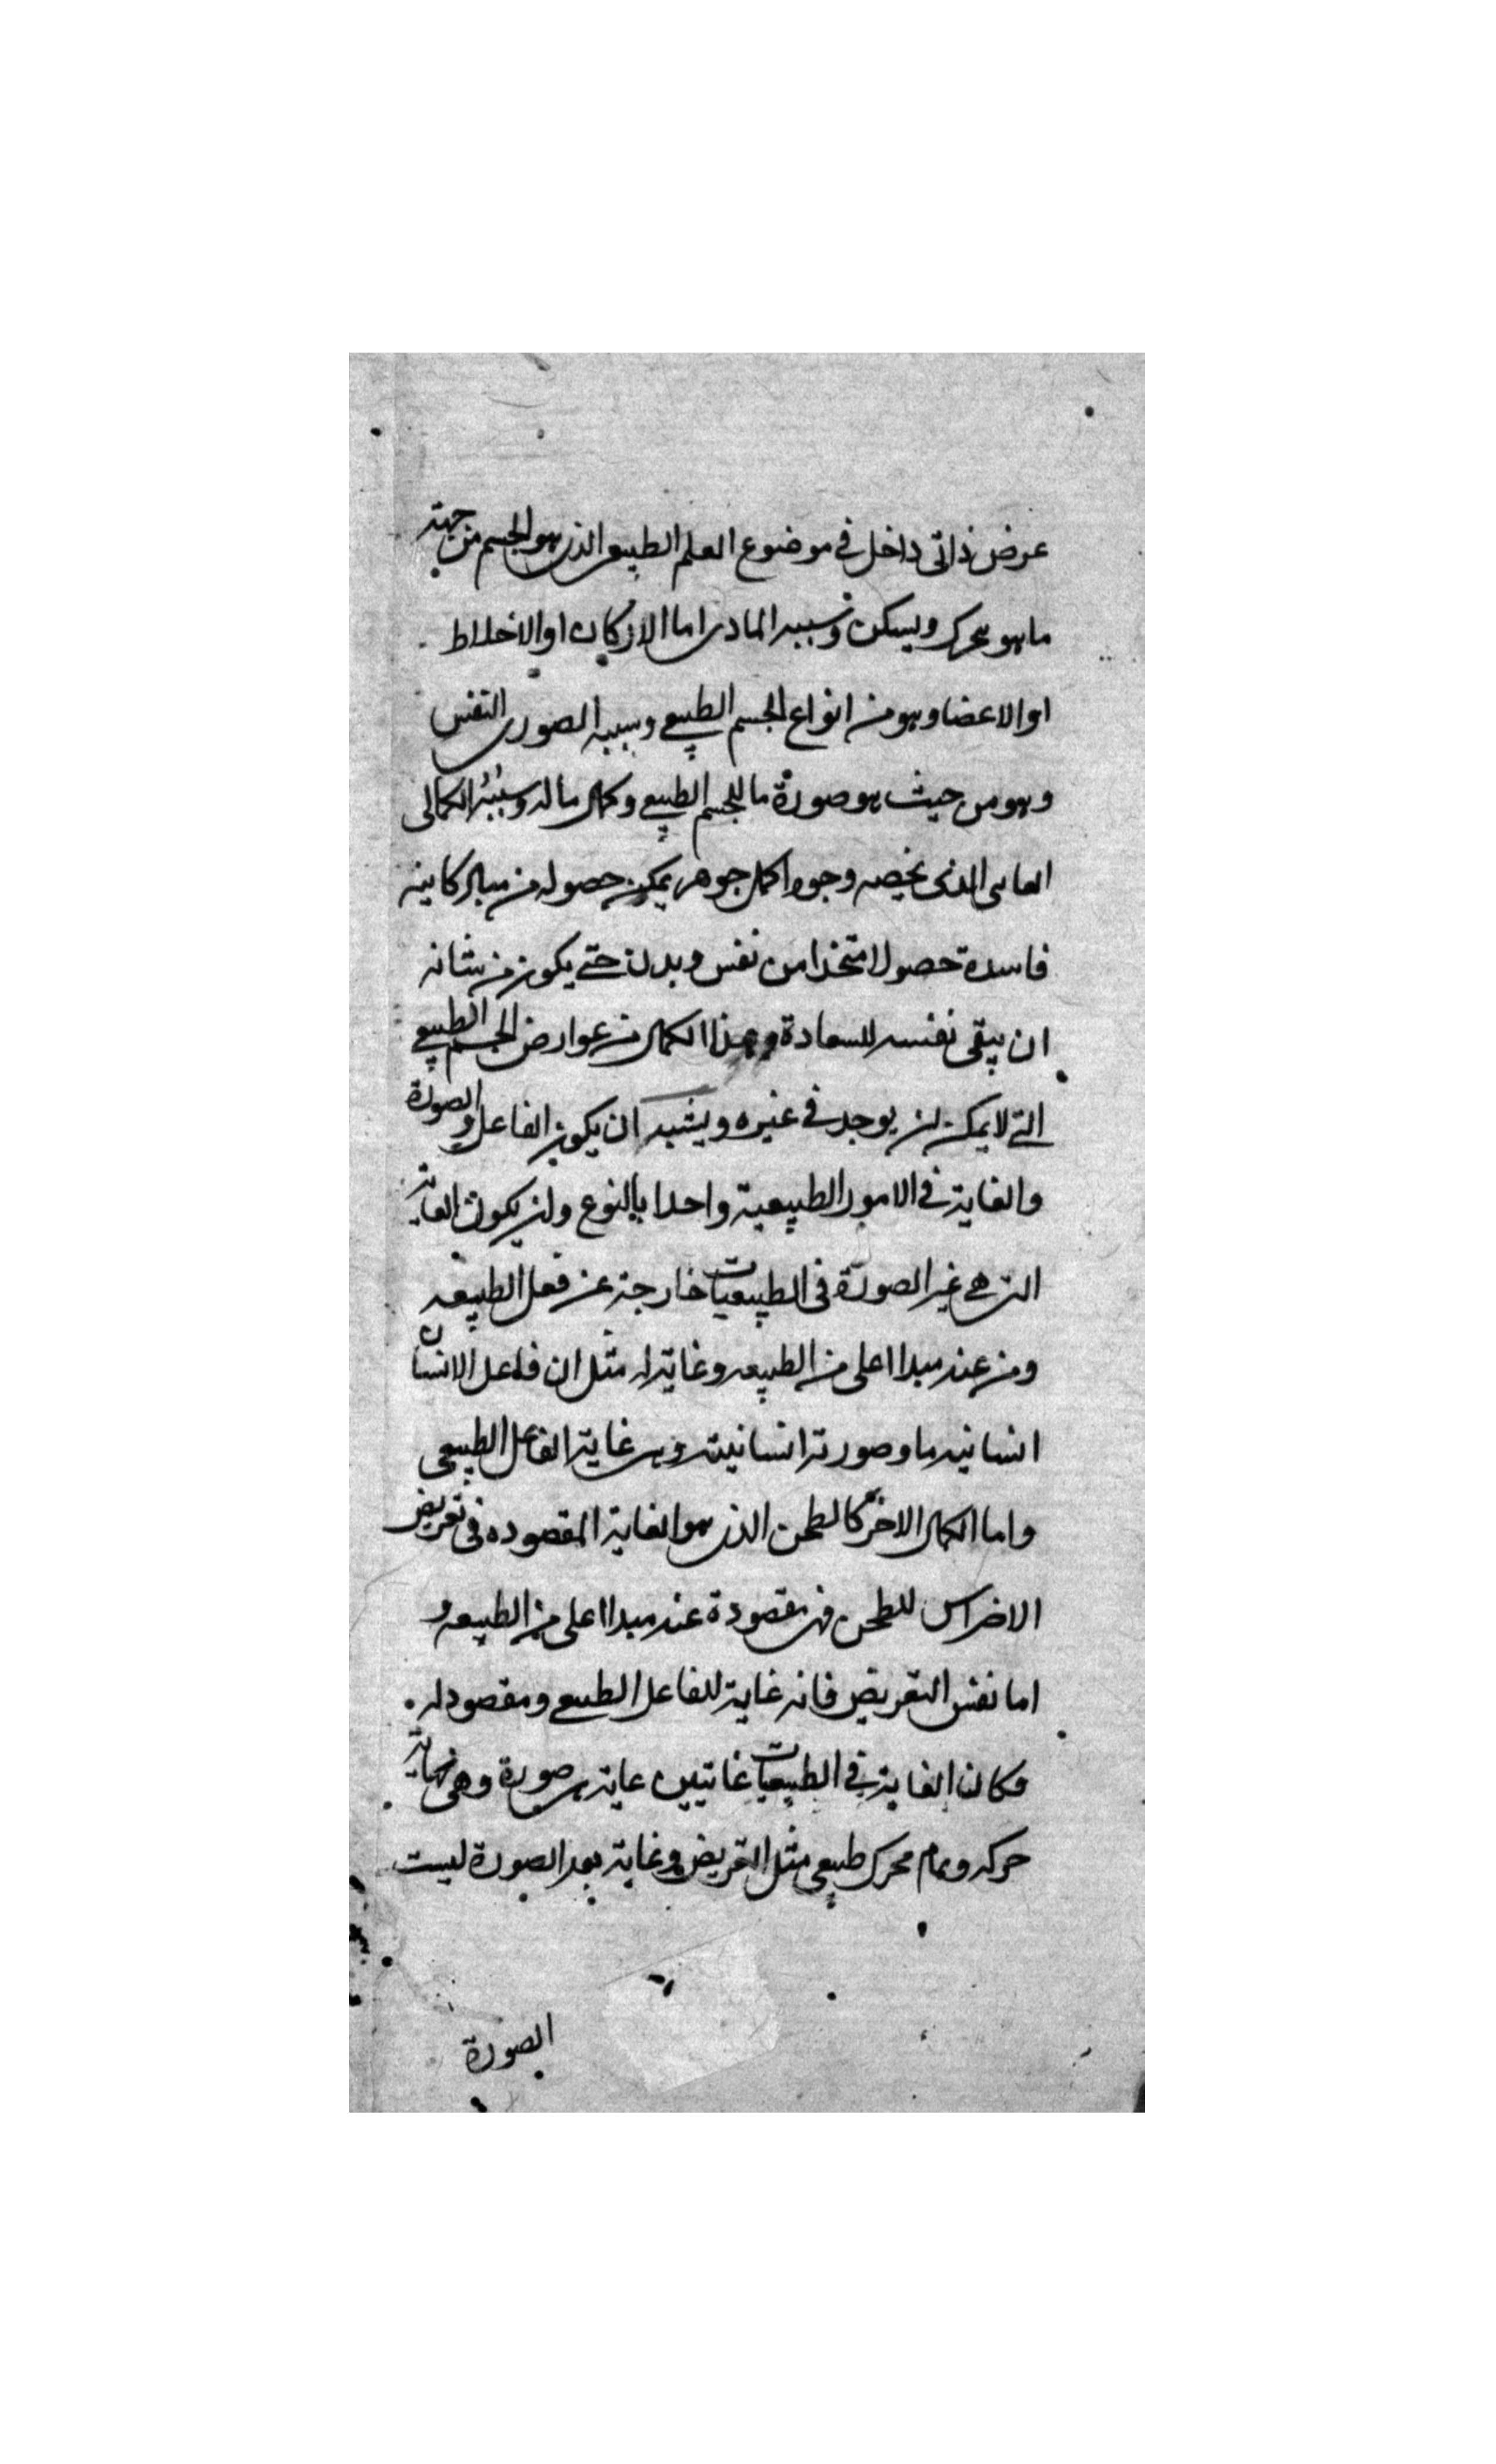 عرض ذاتى داخل فى موضوع العلم الطبيعى الذى هو الجسم من جهة
ما هو يتحرك ويسكن وسببه المادى اما الاركان او الاخلاط
او الاعضا وهو من انواع الجسم الطبيعى وسببه الصورى النفس
وهو من حيث هو صورة ما للجسم الطبيعى وكمال ما له وسببه الكمالى
الغاىى الذى يخصه وجود اكمل جوهر يمكن حصوله من مباد كاينه
فاسدة حصولا متخذا من نفس وبدن حتى يكون من شانه
ان يبقى نفسه للسعادة وهذا الكمال من عوارض الجسم الطبيعى
التى لا يمكن ان يوجد فى غيره ويشبه ان يكون الفاعل والصورة
والغاية فى الامور الطبيعية واحدا بالنوع وان يكون الغاية
التى هى غير الصورة فى الطبيعيات خارجة عن فعل الطبيعه
ومن عند مبدا اعلى من الطبيعه وغاية له مثل ان فاعل الانسان
انسانيه ما وصورته انسانية وهى غاية الفاعل الطبيعى
واما الكمال الاخر كالطحن الذى هو الغاية المقصوده فى تعريض
الاضراس للطحن فهى مقصودة عند مبدا اعلى من الطبيعه و
اما نفس التعريض فانه غاية للفاعل الطبيعى ومقصود له
فكان الغاية فى الطبيعيات غايتين غاية هى صورة وهى نهاية
حركه وتمام محرك طبيعى مثل التعريض وغاية بعد الصورة ليست
الصورة